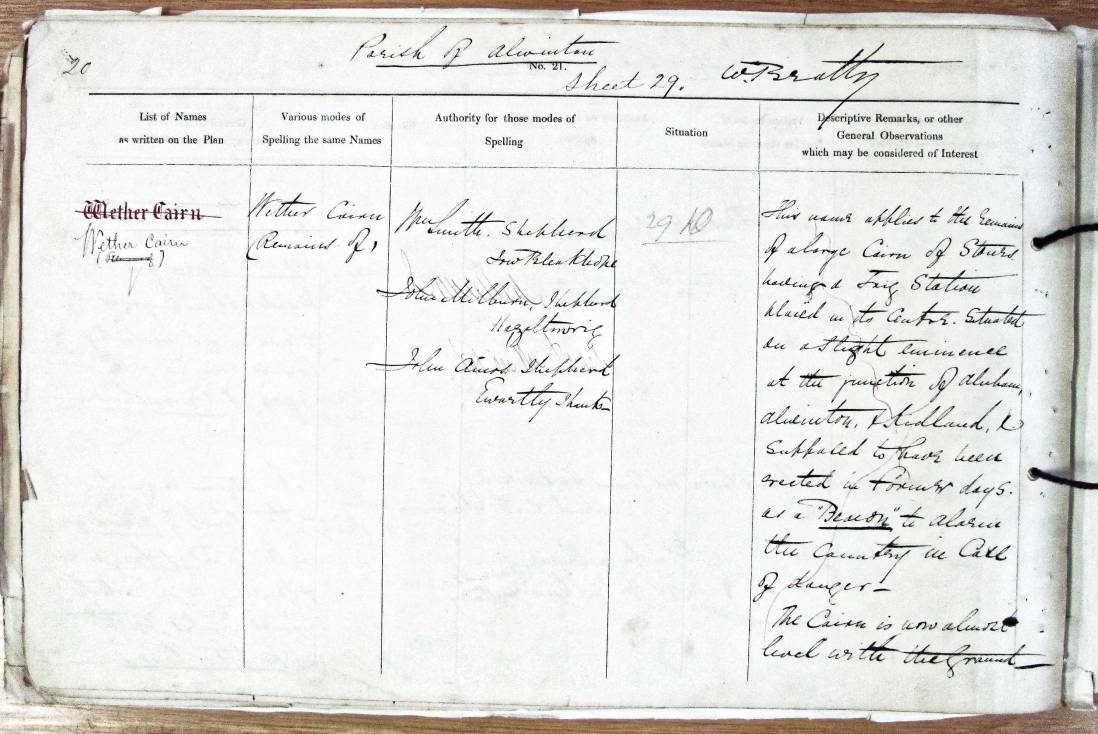 20
Parish of Alwinton
No. 21.
Sheet 29.
W. Beatty
List of Names
as written on the Plan
Various modes of
Spelling the same Names
Authority for those modes of
Spelling
Situation
Descriptive Remarks, or other
General Observations
which may be considered of Interest
Wether Cairn
Wether Cairn
Wether Cairn
(Remains of)
Wm Smith. Shepherd
Low Bleakhope
John Milburn, Shepherd
Hazeltonrig
John Amos Shepherd
Ewartly Shank
29
This name applies to the Remains
of a large Cairn of Stones
having a Trig Station
placed in its Centre. Situated
on a slight eminence
at the junction of Alnham,
Alwinton, & Kidland, &
Supposed to have been
erected in Former days.
as a "Beacon" to alarm
the Country in Case
of danger -
The Cairn is now almost
level with the Ground